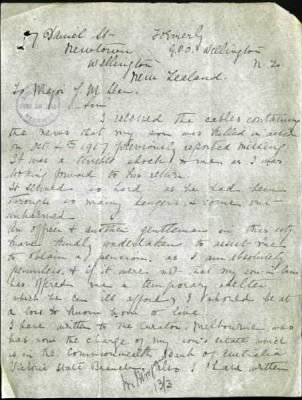 7 Daniel St Formerly
Newtown G.P.O. Wellington
Wellington N. Z.
New Zealand.
To Major J. M. Lean.
Sir
I received the cables containing
the news that my son was killed in action
on Oct 4th 1917 previously reported missing.
It was a terrible shock to me as I was
looking forward to his return.
It seemed so hard as he had been
through so many dangers, & come out
unharmed.
An officer & another gentleman in this city
have kindly undertaken to assist me
to obtain a pension. as I am absolutely
penniless, & if it were not my son in law
has offered me a temporary shelter
which he can ill afford, I should be at
a loss to know how to live.
I have written to the Curator, Melbourne, who
has now the charge of my son's estate which
is in the Commonwealth Bank of Australia
Victoria State Branch. Also I have written
13/3